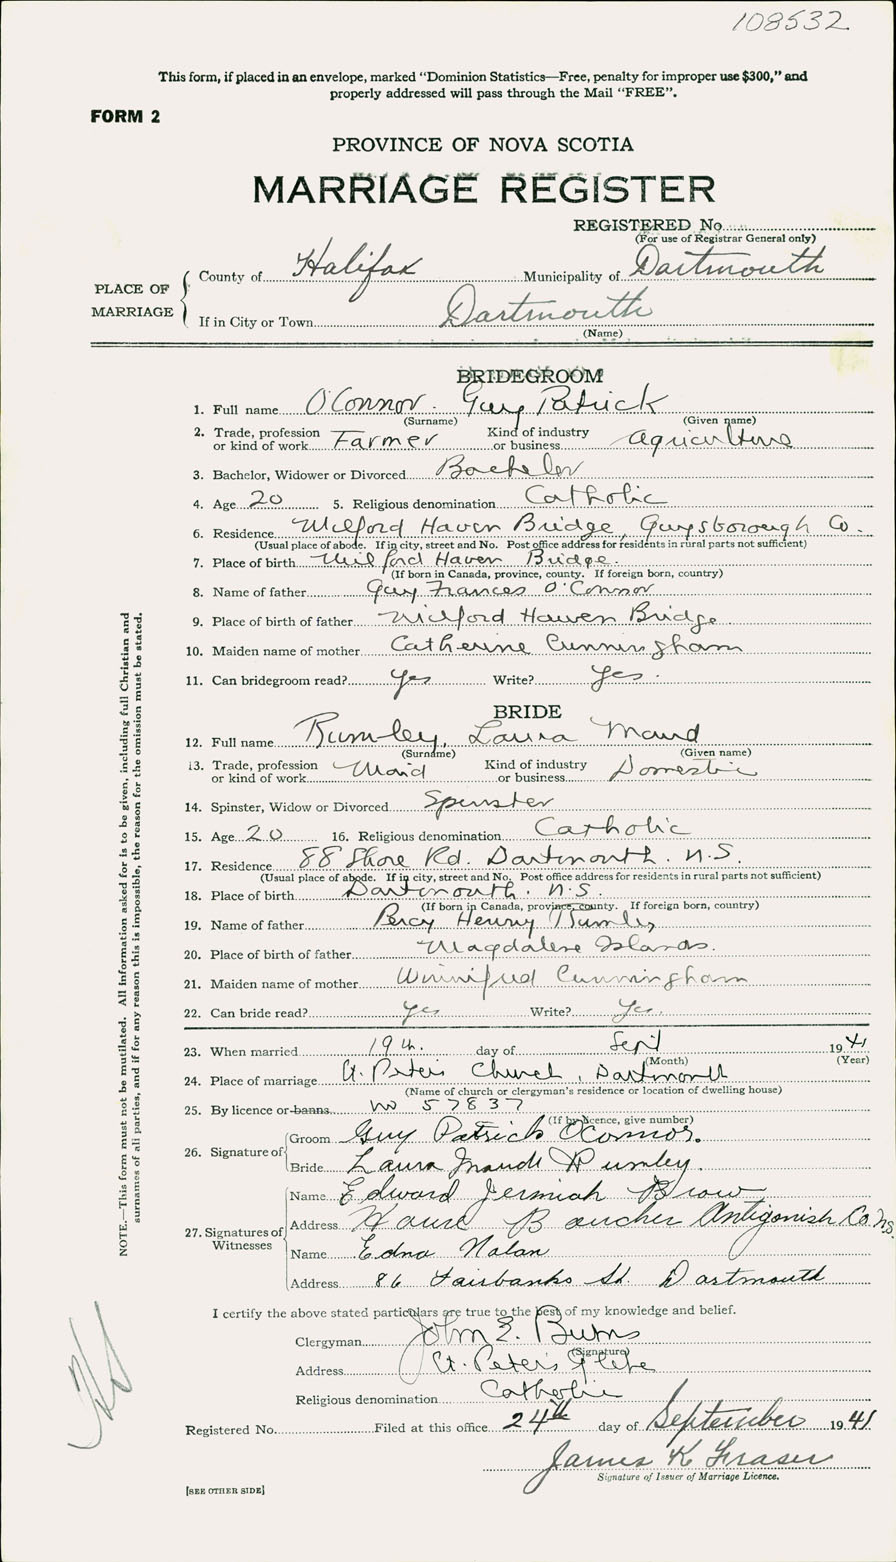 108532
This form, if placed in an envelope, marked "Dominion Statistics—Free, penalty for improper use $300," and
properly addressed will pass through the Mail "FREE".
FORM 2
PROVINCE OF NOVA SCOTIA
MARRIAGE REGISTER
REGISTERED No
(For use of Registrar General only)
PLACE OF MARRIAGE
County of Halifax Municipality of Dartmouth
If in City or Town Dartmouth
(Name)
BRIDEGROOM
1. Full name O'Connor Guy Patrick
(Surname) (Given name)
2. Trade, profession or kind of work Farmer Kind of industry or business agriculture
3. Bachelor, Widower or Divorced Bachelor
4. Age 20 5. Religious denomination Catholic
6. Residence Milford Haven Bridge, Guysborough Co.
(Usual place of abode. If in city, street and No. Post office address for residents in rural parts not sufficient)
7. Place of birth Milford Haven Bridge.
(If born in Canada, province, county. If foreign born, country)
8. Name of father Guy Frances O'Connor
9. Place of birth of father Milford Haven Bridge
10. Maiden name of mother Catherine Cunningham
11. Can bridegroom read? yes Write? yes.
BRIDE
12. Full name Rumley, Laura Maud
(Surname) (Given name)
13. Trade, profession or kind of work Maid Kind of industry or business Domestic
14. Spinster, Widow or Divorced Spinster
15. Age 20 16. Religious denomination Catholic
17. Residence 88 Shore Rd. Dartmouth. N.S.
(Usual place of abode. If in city, street and No. Post office address for residents in rural parts not sufficient)
18. Place of birth Dartmouth. N.S.
(If born in Canada, province, county. If foreign born, country)
19. Name of father Percy Henry Rumley
20. Place of birth of father Magdalene Islands.
21. Maiden name of mother Winnifred Cunningham
22. Can bride read? yes Write? Yes.
23. When married 19th. day of Sept 1941
(Month) (Year)
24. Place of marriage St. Peter's Church, Dartmouth
(Name of church or clergyman's residence or location of dwelling house)
25. By licence or banns no 57837
(If by licence, give number)
26. Signature of
Groom Guy Patrick O'Connor.
Bride Laura Maude Rumley.
27. Signatures of Witnesses
Name Edward Jermiah Brow
Address Havre Boucher Antigonish Co. N.S.
Name Edna Nolan
Address 86 Fairbanks St. Dartmouth
I certify the above stated particulars are true to the best of my knowledge and belief.
Clergyman John E. Burns
(Signature)
Address St. Peter's Glebe
Religious denomination Catholic
Registered No. Filed at this office 24th day of September 1941
James K Fraser
Signature of Issuer of Marriage Licence.
[SEE OTHER SIDE]
NOTE.—This form must not be mutilated. All Information asked for is to be given, including full Christian and
surnames of all parties, and if for any reason this is impossible, the reason for the omission must be stated.